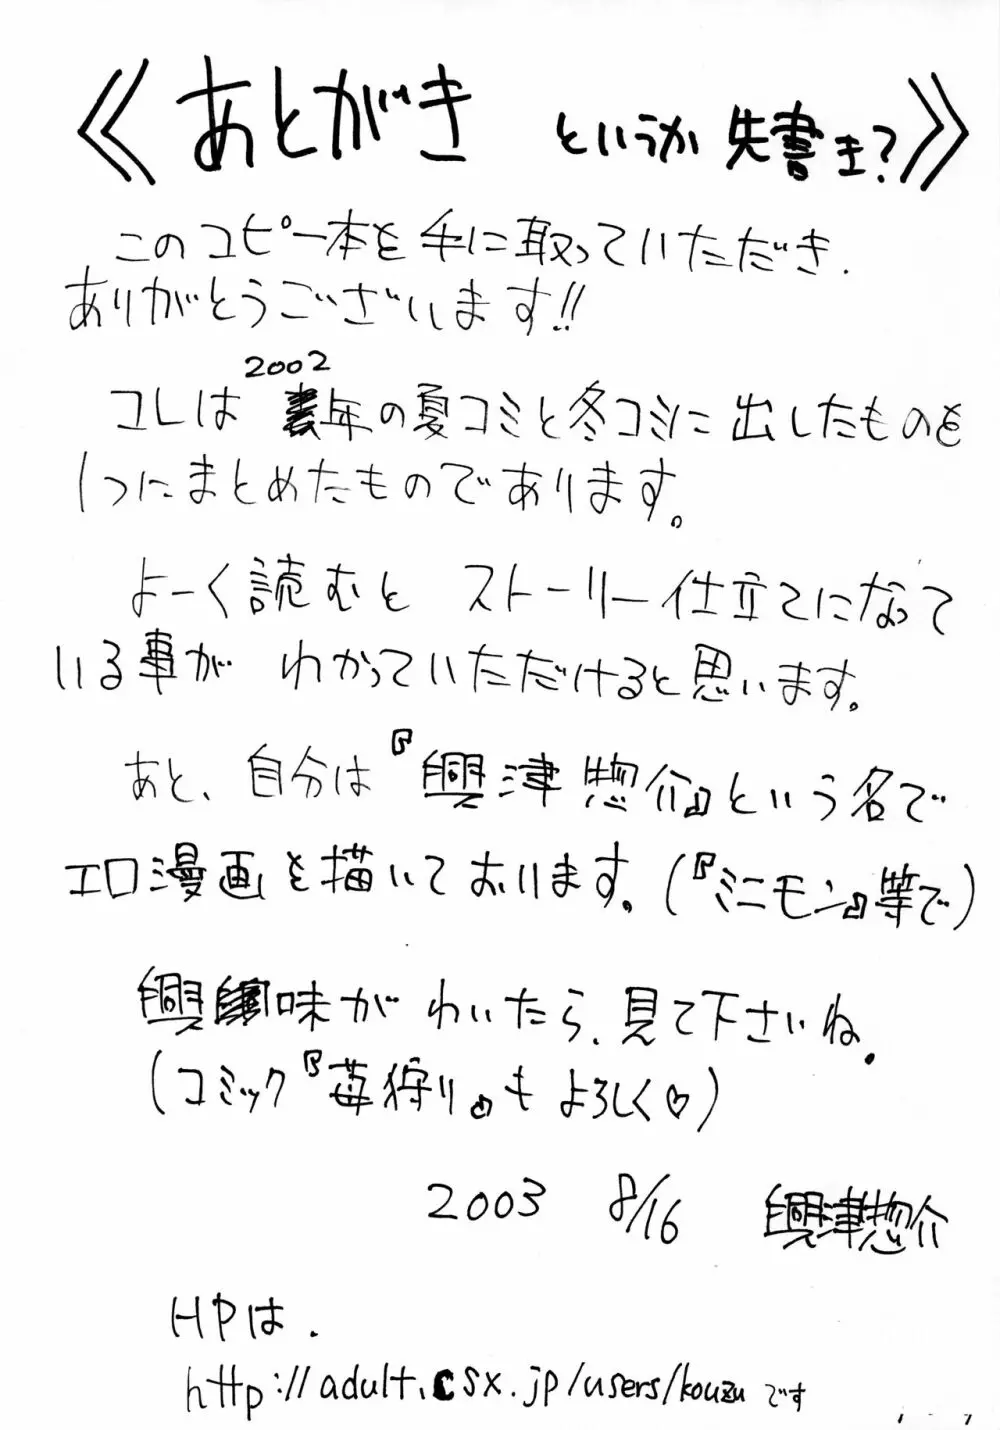 《あとがき というか 先書き?》
このコピー本を手に取っていただき.
ありがとうございます!!
2002
コレは 年の夏コミと冬コミに出したものを
1つにまとめたものであります。
よーく読むと ストーリー仕立てになって
いる事が わかっていただけると思います。
あと、自分は『興津惣介』という名で
エロ漫画を描いております。(『ミニモン』等で)
興味がわいたら、見て下さいね。
(コミック『苺狩り』もよろしく♡)
2003 8/16 興津惣介
HPは.
http://adult.csx.jp/users/kouzu です